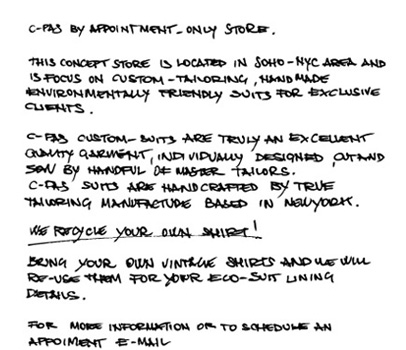 C-FAS BY APPOINTMENT-ONLY STORE.
THIS CONCEPT STORE IS LOCATED IN SOHO-NYC AREA AND
IS FOCUS ON CUSTOM-TAILORING, HANDMADE
ENVIRONMENTALLY FRIENDLY SUITS FOR EXCLUSIVE
CLIENTS.
C-FAS CUSTOM-SUITS ARE TRULY AN EXCELLENT
QUALITY GARMENT, INDIVIDUALLY DESIGNED, CUT AND
SEW BY HANDFUL OF MASTER TAILORS.
C-FAS SUITS ARE HANDCRAFTED BY TRUE
TAILORING MANUFACTURE BASED IN NEWYORK.
WE RECYCLE YOUR OWN SHIRT!
BRING YOUR OWN VINTAGE SHIRTS AND WE WILL
RE-USE THEM FOR YOUR ECO-SUIT LINING
DETAILS.
FOR MORE INFORMATION OR TO SCHEDULE AN
APPOIMENT E-MAIL